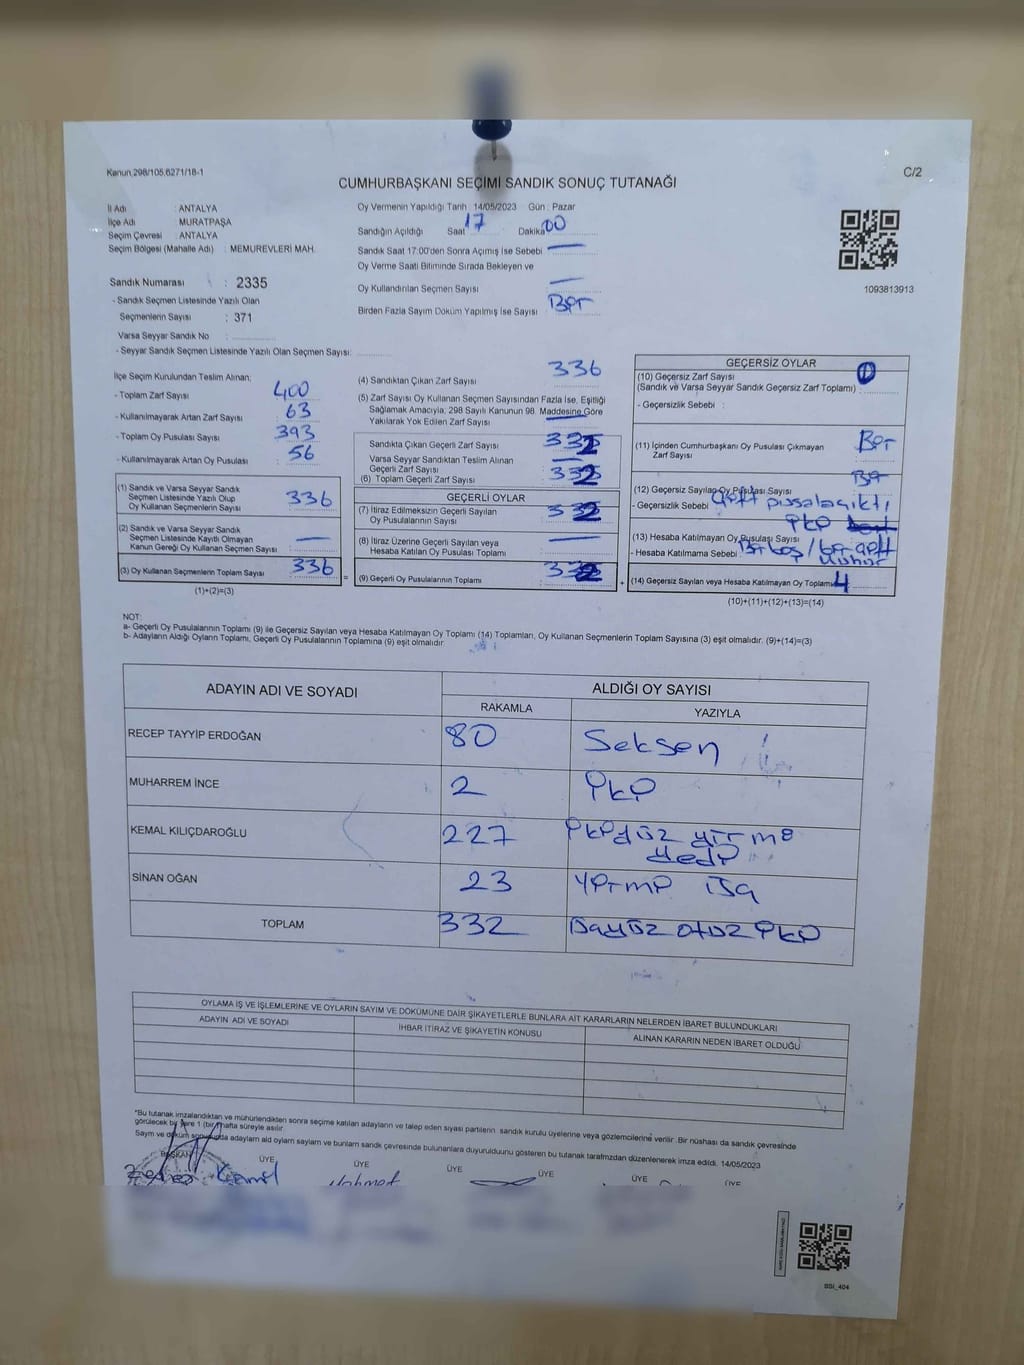 Kanun,298/105,6271/18-1
C/2
CUMHURBAŞKANI SEÇİMİ SANDIK SONUÇ TUTANAĞI
İl Adı : ANTALYA
İlçe Adı : MURATPAŞA
Seçim Çevresi : ANTALYA
Seçim Bölgesi (Mahalle Adı) : MEMUREVLERİ MAH.
Sandık Numarası : 2335
- Sandık Seçmen Listesinde Yazılı Olan
Seçmenlerin Sayısı : 371
Varsa Seyyar Sandık No :
- Seyyar Sandık Seçmen Listesinde Yazılı Olan Seçmen Sayısı:
Oy Vermenin Yapıldığı Tarih : 14/05/2023 Gün : Pazar
Sandığın Açıldığı Saat 17 Dakika 00
Sandık Saat 17:00'den Sonra Açımış İse Sebebi —
Oy Verme Saati Bitiminde Sırada Bekleyen ve
Oy Kullandırılan Seçmen Sayısı —
Birden Fazla Sayım Döküm Yapılmış İse Sayısı Bir
1093813913
İlçe Seçim Kurulundan Teslim Alınan;
- Toplam Zarf Sayısı 400
- Kullanılmayarak Artan Zarf Sayısı : 63
- Toplam Oy Pusulası Sayısı 393
- Kullanılmayarak Artan Oy Pusulası : 56
(1) Sandık ve Varsa Seyyar Sandık
Seçmen Listesinde Yazılı Olup
Oy Kullanan Seçmenlerin Sayısı : 336
(2) Sandık ve Varsa Seyyar Sandık
Seçmen Listesinde Kayıtlı Olmayan
Kanun Gereği Oy Kullanan Seçmen Sayısı : —
(3) Oy Kullanan Seçmenlerin Toplam Sayısı : 336
(1)+(2)=(3)
(4) Sandıktan Çıkan Zarf Sayısı : 336
(5) Zarf Sayısı Oy Kullanan Seçmen Sayısından Fazla İse, Eşitliği
Sağlamak Amacıyla; 298 Sayılı Kanunun 98. Maddesine Göre
Yakılarak Yok Edilen Zarf Sayısı : —
Sandıkta Çıkan Geçerli Zarf Sayısı : 332
Varsa Seyyar Sandıktan Teslim Alınan
Geçerli Zarf Sayısı : —
(6) Toplam Geçerli Zarf Sayısı : 332
GEÇERLİ OYLAR
(7) İtiraz Edilmeksizin Geçerli Sayılan
Oy Pusulalarının Sayısı : 332
(8) İtiraz Üzerine Geçerli Sayılan veya
Hesaba Katılan Oy Pusulası Toplamı : —
(9) Geçerli Oy Pusulalarının Toplamı : 332
GEÇERSİZ OYLAR
(10) Geçersiz Zarf Sayısı 0
(Sandık ve Varsa Seyyar Sandık Geçersiz Zarf Toplamı) :
- Geçersizlik Sebebi :
(11) İçinden Cumhurbaşkanı Oy Pusulası Çıkmayan
Zarf Sayısı : Bir
(12) Geçersiz Sayılan Oy Pusulası Sayısı : Bir
- Geçersizlik Sebebi Çift pusula çıktı
(13) Hesaba Katılmayan Oy Pusulası Sayısı : iki
- Hesaba Katılmama Sebebi : Bir boş / bir çift
mühür
(14) Geçersiz Sayılan veya Hesaba Katılmayan Oy Toplamı 4
(10)+(11)+(12)+(13)=(14)
NOT:
a- Geçerli Oy Pusulalarının Toplamı (9) ile Geçersiz Sayılan veya Hesaba Katılmayan Oy Toplamı (14) Toplamları, Oy Kullanan Seçmenlerin Toplam Sayısına (3) eşit olmalıdır. (9)+(14)=(3)
b- Adayların Aldığı Oyların Toplamı, Geçerli Oy Pusulalarının Toplamına (9) eşit olmalıdır.
ADAYIN ADI VE SOYADI ALDIĞI OY SAYISI
RAKAMLA YAZIYLA
RECEP TAYYİP ERDOĞAN 80 Seksen
MUHARREM İNCE 2 iki
KEMAL KILIÇDAROĞLU 227 ikiyüz yirmi
yedi
SİNAN OĞAN 23 yirmi üç
TOPLAM 332 üçyüz otuz iki
OYLAMA İŞ VE İŞLEMLERİNE VE OYLARIN SAYIM VE DÖKÜMÜNE DAİR ŞİKAYETLERLE BUNLARA AİT KARARLARIN NELERDEN İBARET BULUNDUKLARI
ADAYIN ADI VE SOYADI İHBAR İTİRAZ VE ŞİKAYETİN KONUSU ALINAN KARARIN NEDEN İBARET OLDUĞU
"Bu tutanak imzalandıktan ve mühürlendikten sonra seçime katılan adayların ve talep eden siyasi partilerin sandık kurulu üyelerine veya gözlemcilerine verilir. Bir nüshası da sandık çevresinde
görülecek bir yere 1 (bir) hafta süreyle asılır.
Sayım ve döküm sonunda adayların aldı oyların sayların ve bunların sandık çevresinde bulunanlara duyurulduunu gösteren bu tutanak tarafımızdan düzenlenerek imza edildi. 14/05/2023
BAŞKAN ÜYE ÜYE ÜYE ÜYE ÜYE ÜYE
Kamil Mahmet
SSI_404